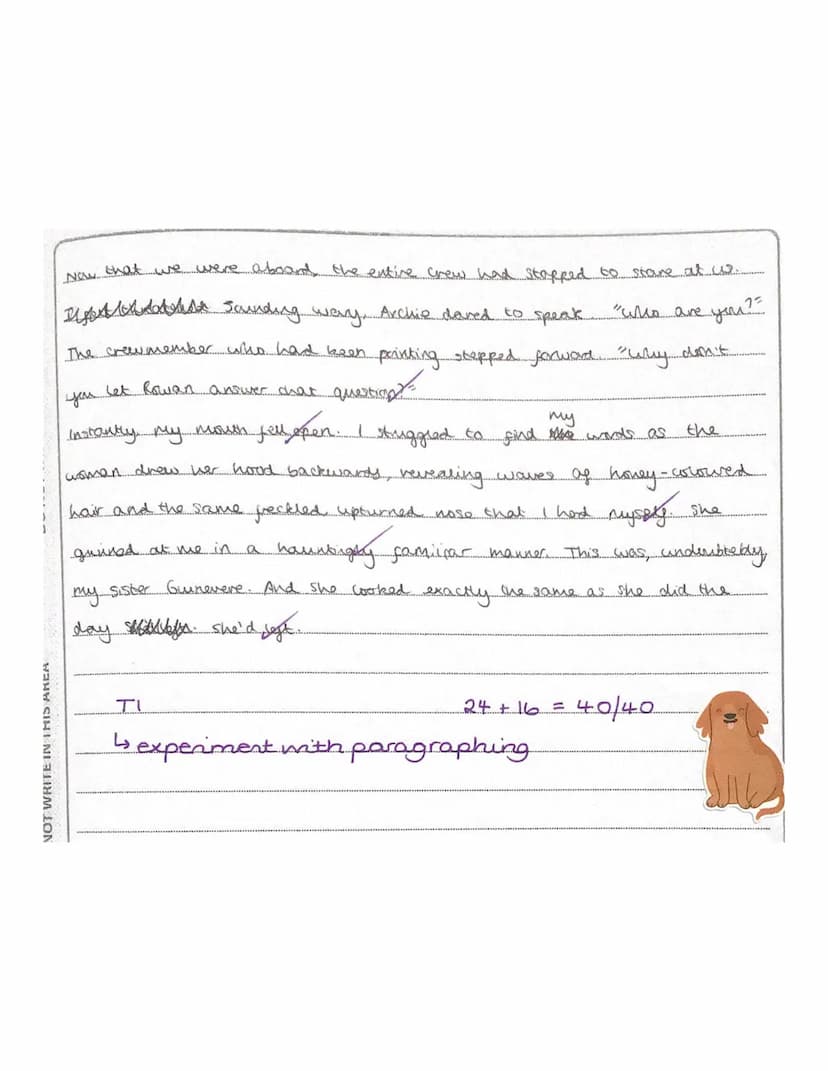 Now that we were aboard, the entire crew had stopped to stare at us.
Sounding wary, Archie dared to speak. "Who are you?"
The crewmember who had been pointing stepped forward. "Why don't
you let Rowan answer that question?"
Instantly, my mouth fell open. I struggled to find my words as the
woman drew her hood backwards, revealing waves of honey-coloured
hair and the same freckled, upturned nose that I had myself. She
grinned at me in a hauntingly familiar manner. This was, undoubtebly,
my sister Guinevere. And she looked exactly the same as she did the
day she'd left.
TI
24 + 16 = 40/40
↳ experiment with paragraphing
NOT WRITE IN THIS AREA